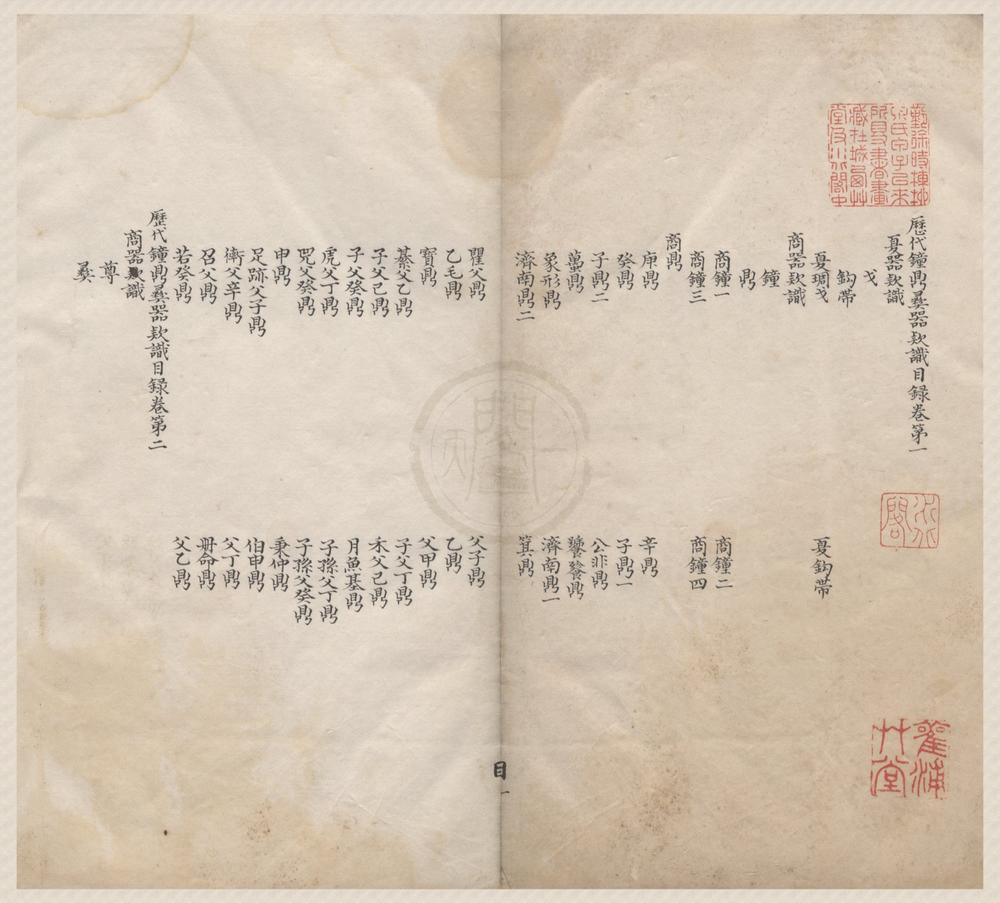 歷代鐘鼎彛器欵識目録卷第一
夏器欵識
戈
鈎帶
夏琱戈 夏鈎帶
商器欵識
鐘
鼎
商鐘一 商鐘二
商鐘三 商鐘四
商鼎
庚鼎 辛鼎
癸鼎 子鼎一
子鼎二 公非鼎
蠆鼎 饕餮鼎
象形鼎 濟南鼎一
濟南鼎二 箕鼎
瞿父鼎 父子鼎
乙毛鼎 乙鼎
寳鼎 父甲鼎
綦父乙鼎 子父丁鼎
子父己鼎 禾父己鼎
子父癸鼎 月魚基鼎
虎父丁鼎 子孫父丁鼎
兕父癸鼎 子孫父癸鼎
申鼎 秉仲鼎
足跡父子鼎 伯申鼎
衛父辛鼎 父丁鼎
召父鼎 册命鼎
若癸鼎 父乙鼎
歷代鐘鼎彛器欵識目録卷第二
商器欵識
尊
彛
目一